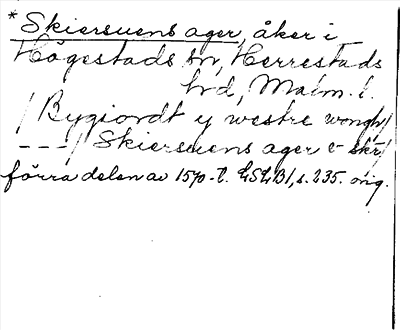 * Skiersuens ager, åker i
Högestads sn, Herrestads
hd, Malm. l.
/ Bygiordt y westre wongh/
---/ Skiersuens ager e- skr/
förra delen av 1570-t. LSLB1, s. 235. orig.